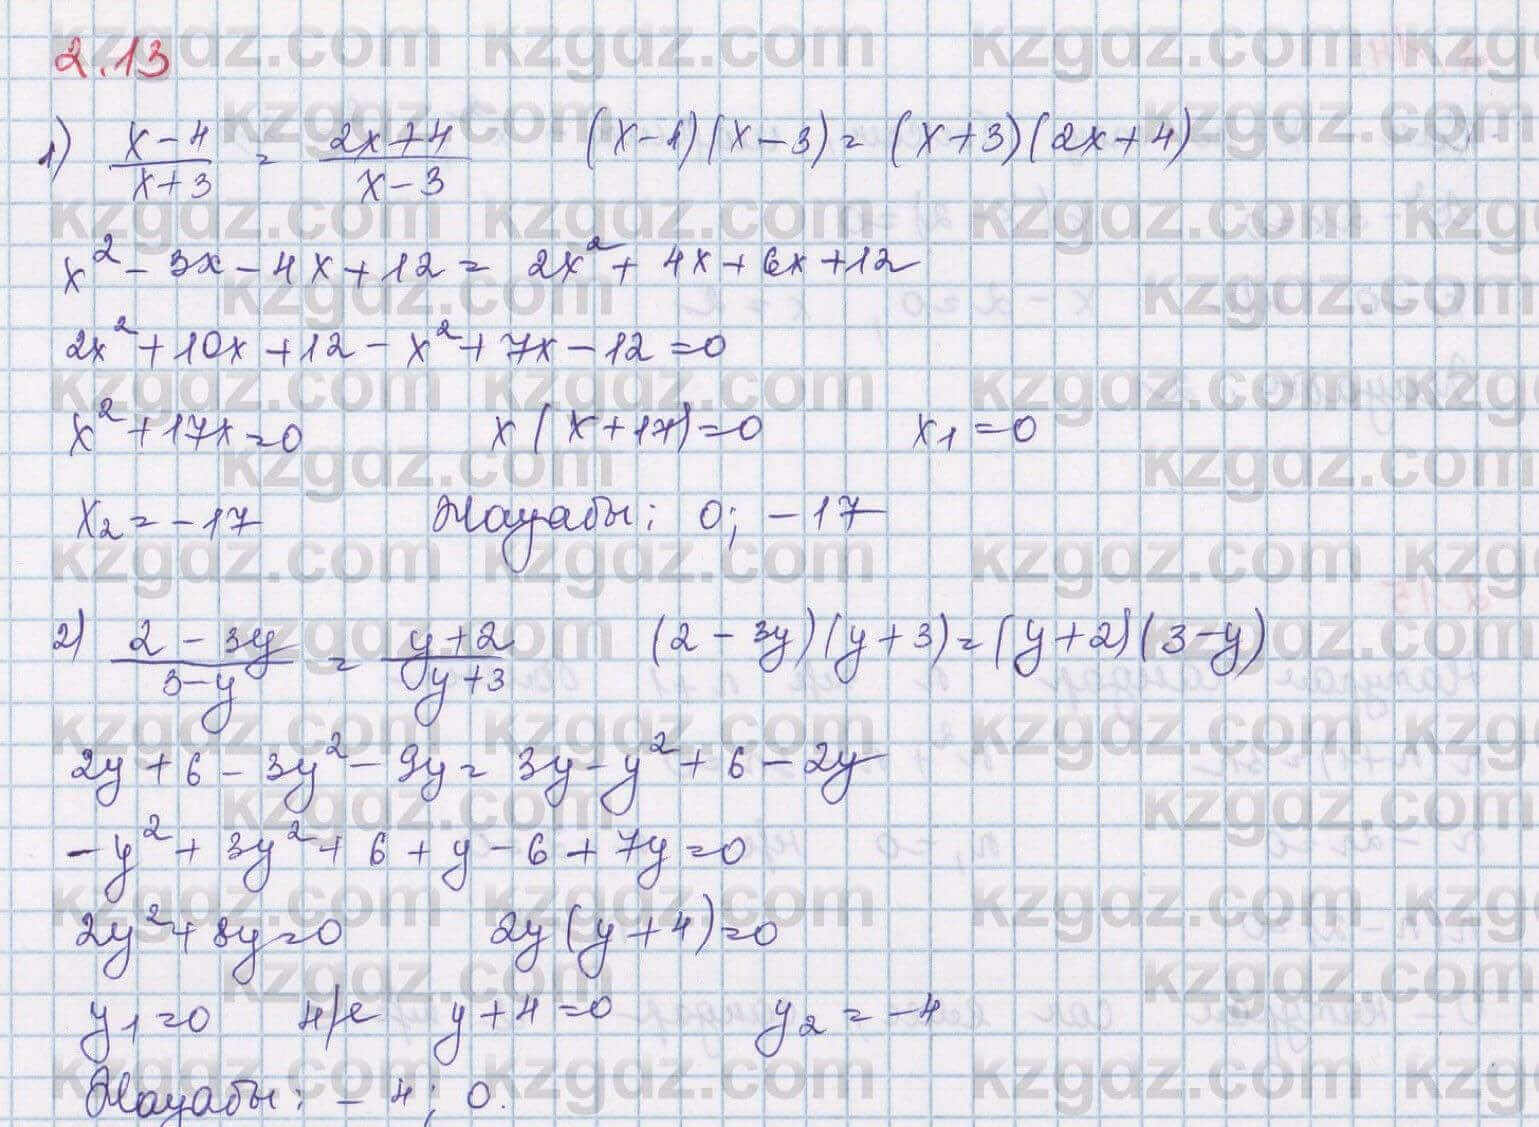 2.13
1) (x-4)/(x+3) = (2x+4)/(x-3) (x-1)(x-3) = (x+3)(2x+4)
x² - 3x - 4x + 12 = 2x² + 4x + 6x + 12
2x² + 10x + 12 - x² + 7x - 12 = 0
x² + 17x = 0 x(x+17) = 0 x₁ = 0
x₂ = -17 Жауабы: 0; -17
2) (2-3y)/(3-y) = (y+2)/(y+3) (2-3y)(y+3) = (y+2)(3-y)
2y + 6 - 3y² - 9y = 3y - y² + 6 - 2y
-y² + 3y² + 6 + y - 6 + 7y = 0
2y² + 8y = 0 2y(y+4) = 0
y₁ = 0 н/е y + 4 = 0 y₂ = -4
Жауабы: -4; 0.
kzgdz.com